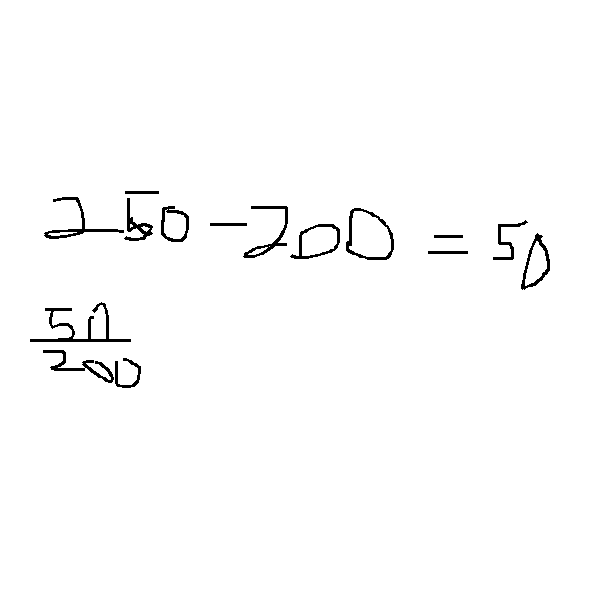 250 - 200 = 50
50
200